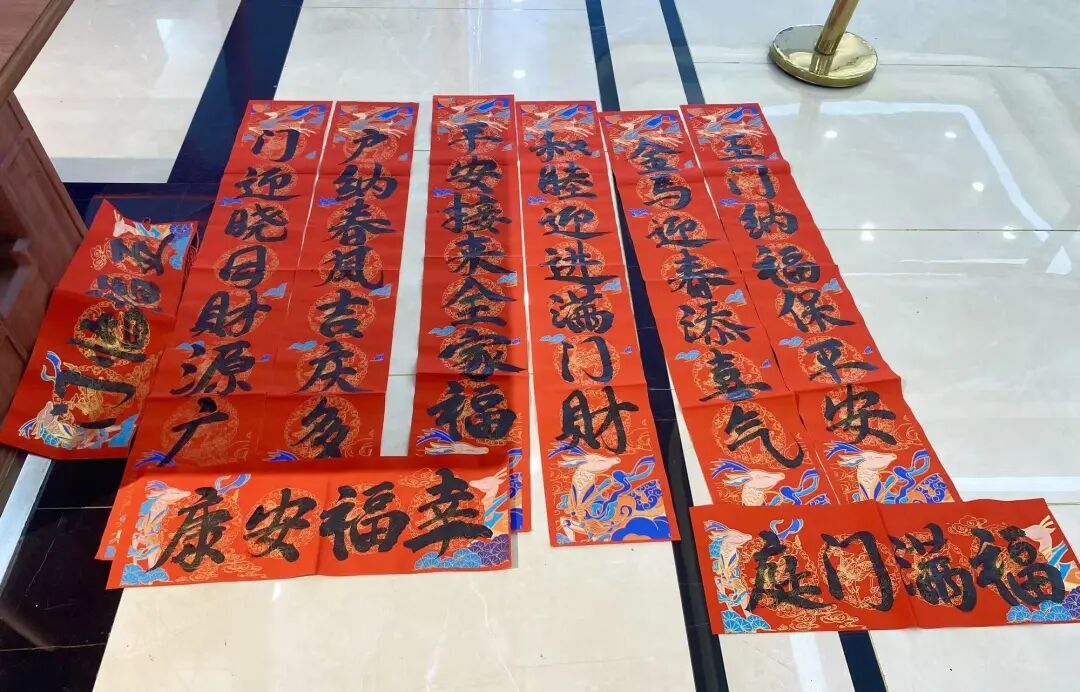 门迎晓日财源广
户纳春风吉庆多
平安接来全家福
和睦迎进满门财
金马迎春添喜气
玉门纳福保平安
幸福安康
福满门庭